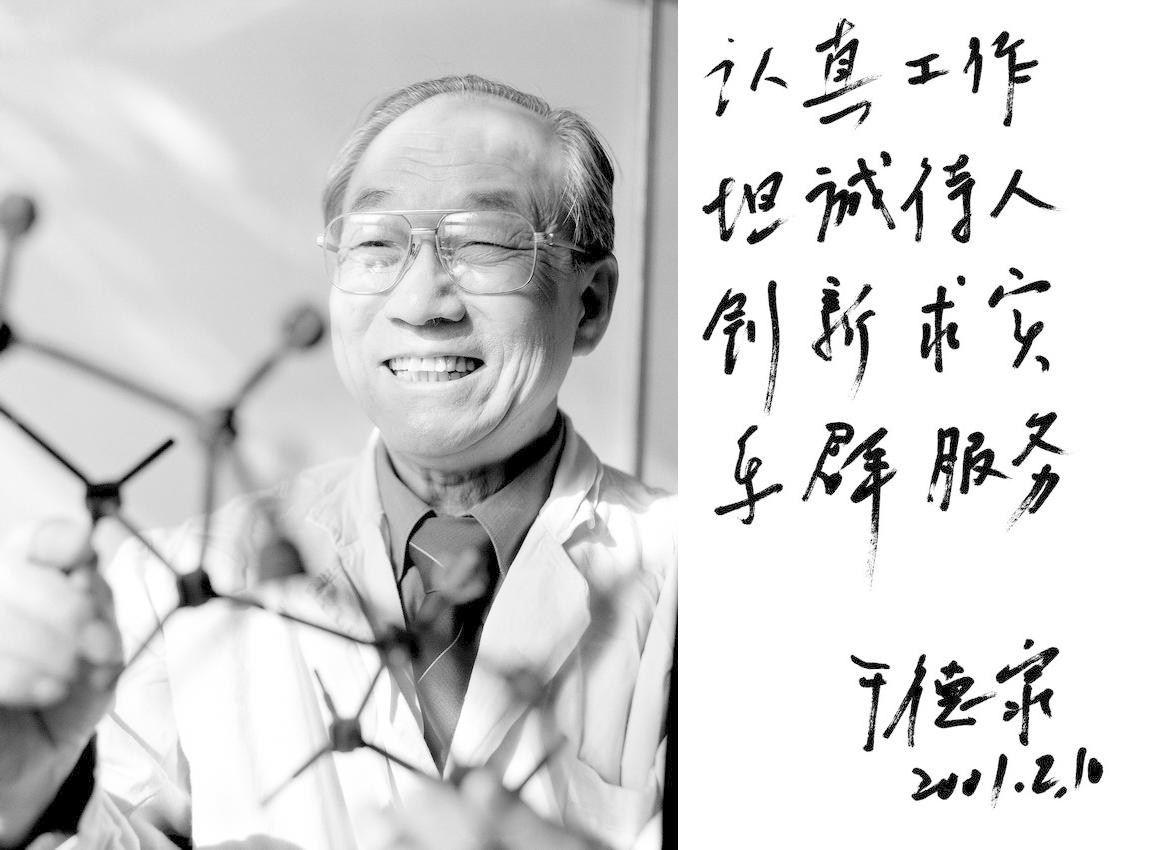 认真工作
坦诚待人
创新求实
乐群服务
于德泉
2001.2.10